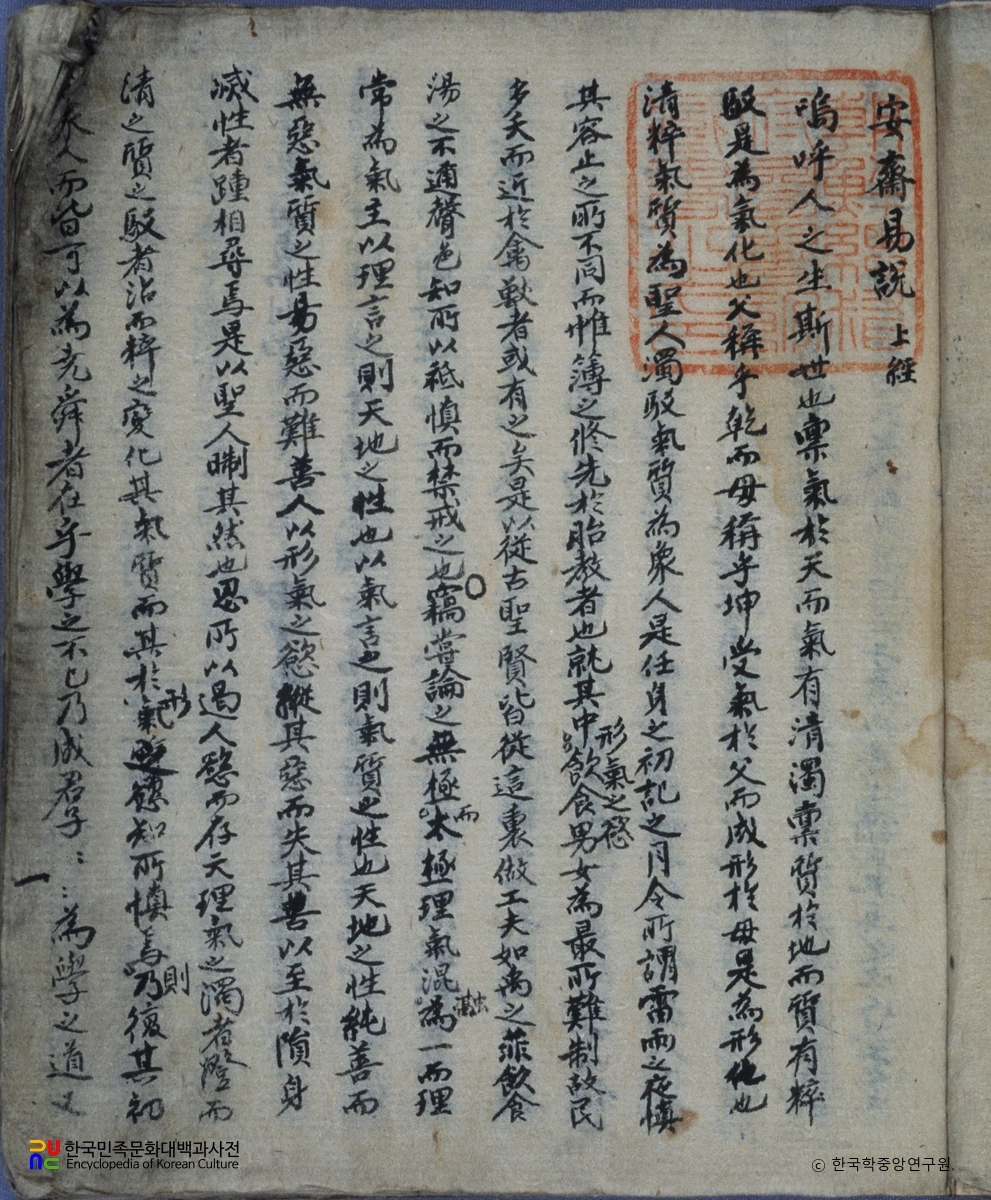 安齋易說 上經
嗚呼人之生斯世也禀氣於天而氣有清濁禀質於地而質有粹
駁是為氣化也父稱乎乾而母稱乎坤受氣於父而成形於母是為形化也
清粹氣質為聖人濁駁氣質為衆人是任身之初記之月令所謂雷雨之夜慎
其容止之所不同而帷簿之修先於胎教者也就其中形氣之慾飲食男女為最所難制故民
多夭而近於禽獸者或有之矣是以從古聖賢皆從這裏做工夫如禹之菲飲食
湯之不邇聲色知所以祗慎而禁戒之也○竊嘗論之無極而太極理氣混融為一而理
常為氣主以理言之則天地之性也以氣言之則氣質之性也天地之性純善而
無惡氣質之性易惡而難善人以形氣之慾縱其惡而失其善以至於隕身
滅性者踵相尋焉是以聖人制其然也思所以遏人慾而存天理氣之濁者澄而
清之質之駁者治而粹之變化其氣質而其於形氣慾知所慎焉則乃復其初
人而皆可以為堯舜者在乎學之不已乃成君子〻〻為學之道又
一
한국민족문화대백과사전
Encyclopedia of Korean Culture
© 한국학중앙연구원.